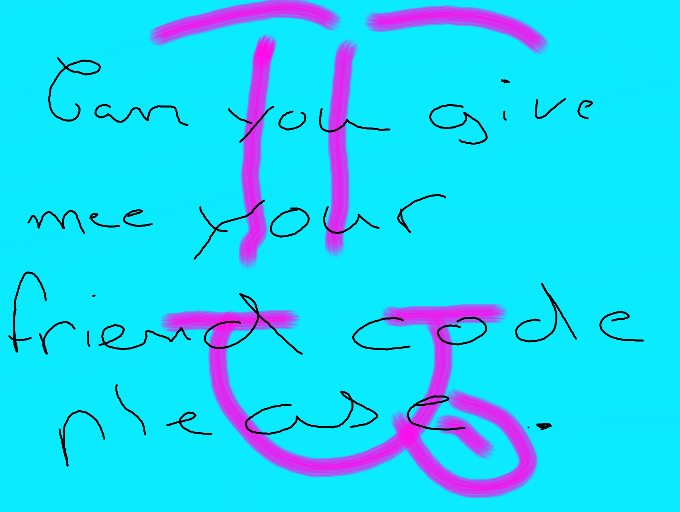 Can you give
mee your
friend code
please.